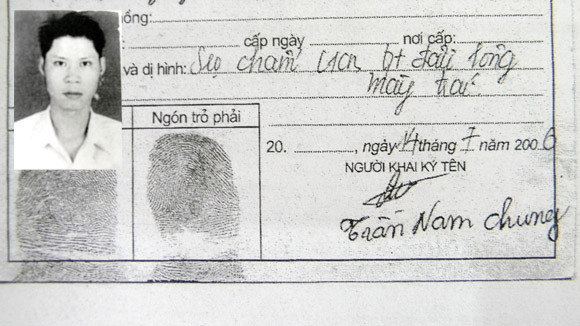 ồng:
cấp ngày nơi cấp:
và dị hình: Sẹo chấm 1cm đầu lông
mày trái
Ngón trỏ phải
20. , ngày 14 tháng 7 năm 2006
NGƯỜI KHAI KÝ TÊN
Trần Nam Chung